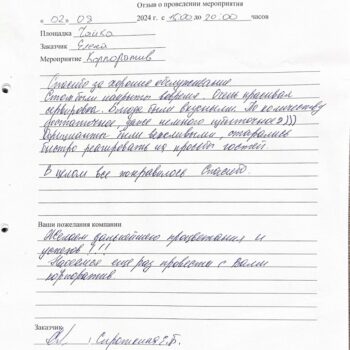 Отзыв о проведении мероприятия
« 02 » 03 2024 г. с 15:00 до 20:00 часов
Площадка Чайка
Заказчик Елена
Мероприятие Корпоратив
Спасибо за хорошее обслуживание.
Столы были накрыты вовремя. Очень красивая
сервировка. Блюда были вкусными. По количеству
достаточное, даже немного избыточное)))
Официанты были вежливыми, старались
быстро реагировать на просьбы гостей.
В целом все понравилось Спасибо
Ваши пожелания компании
Желаем дальнейшего процветания и
успехов!!!
Надеемся еще раз провести с Вами
корпоратив
Заказчик